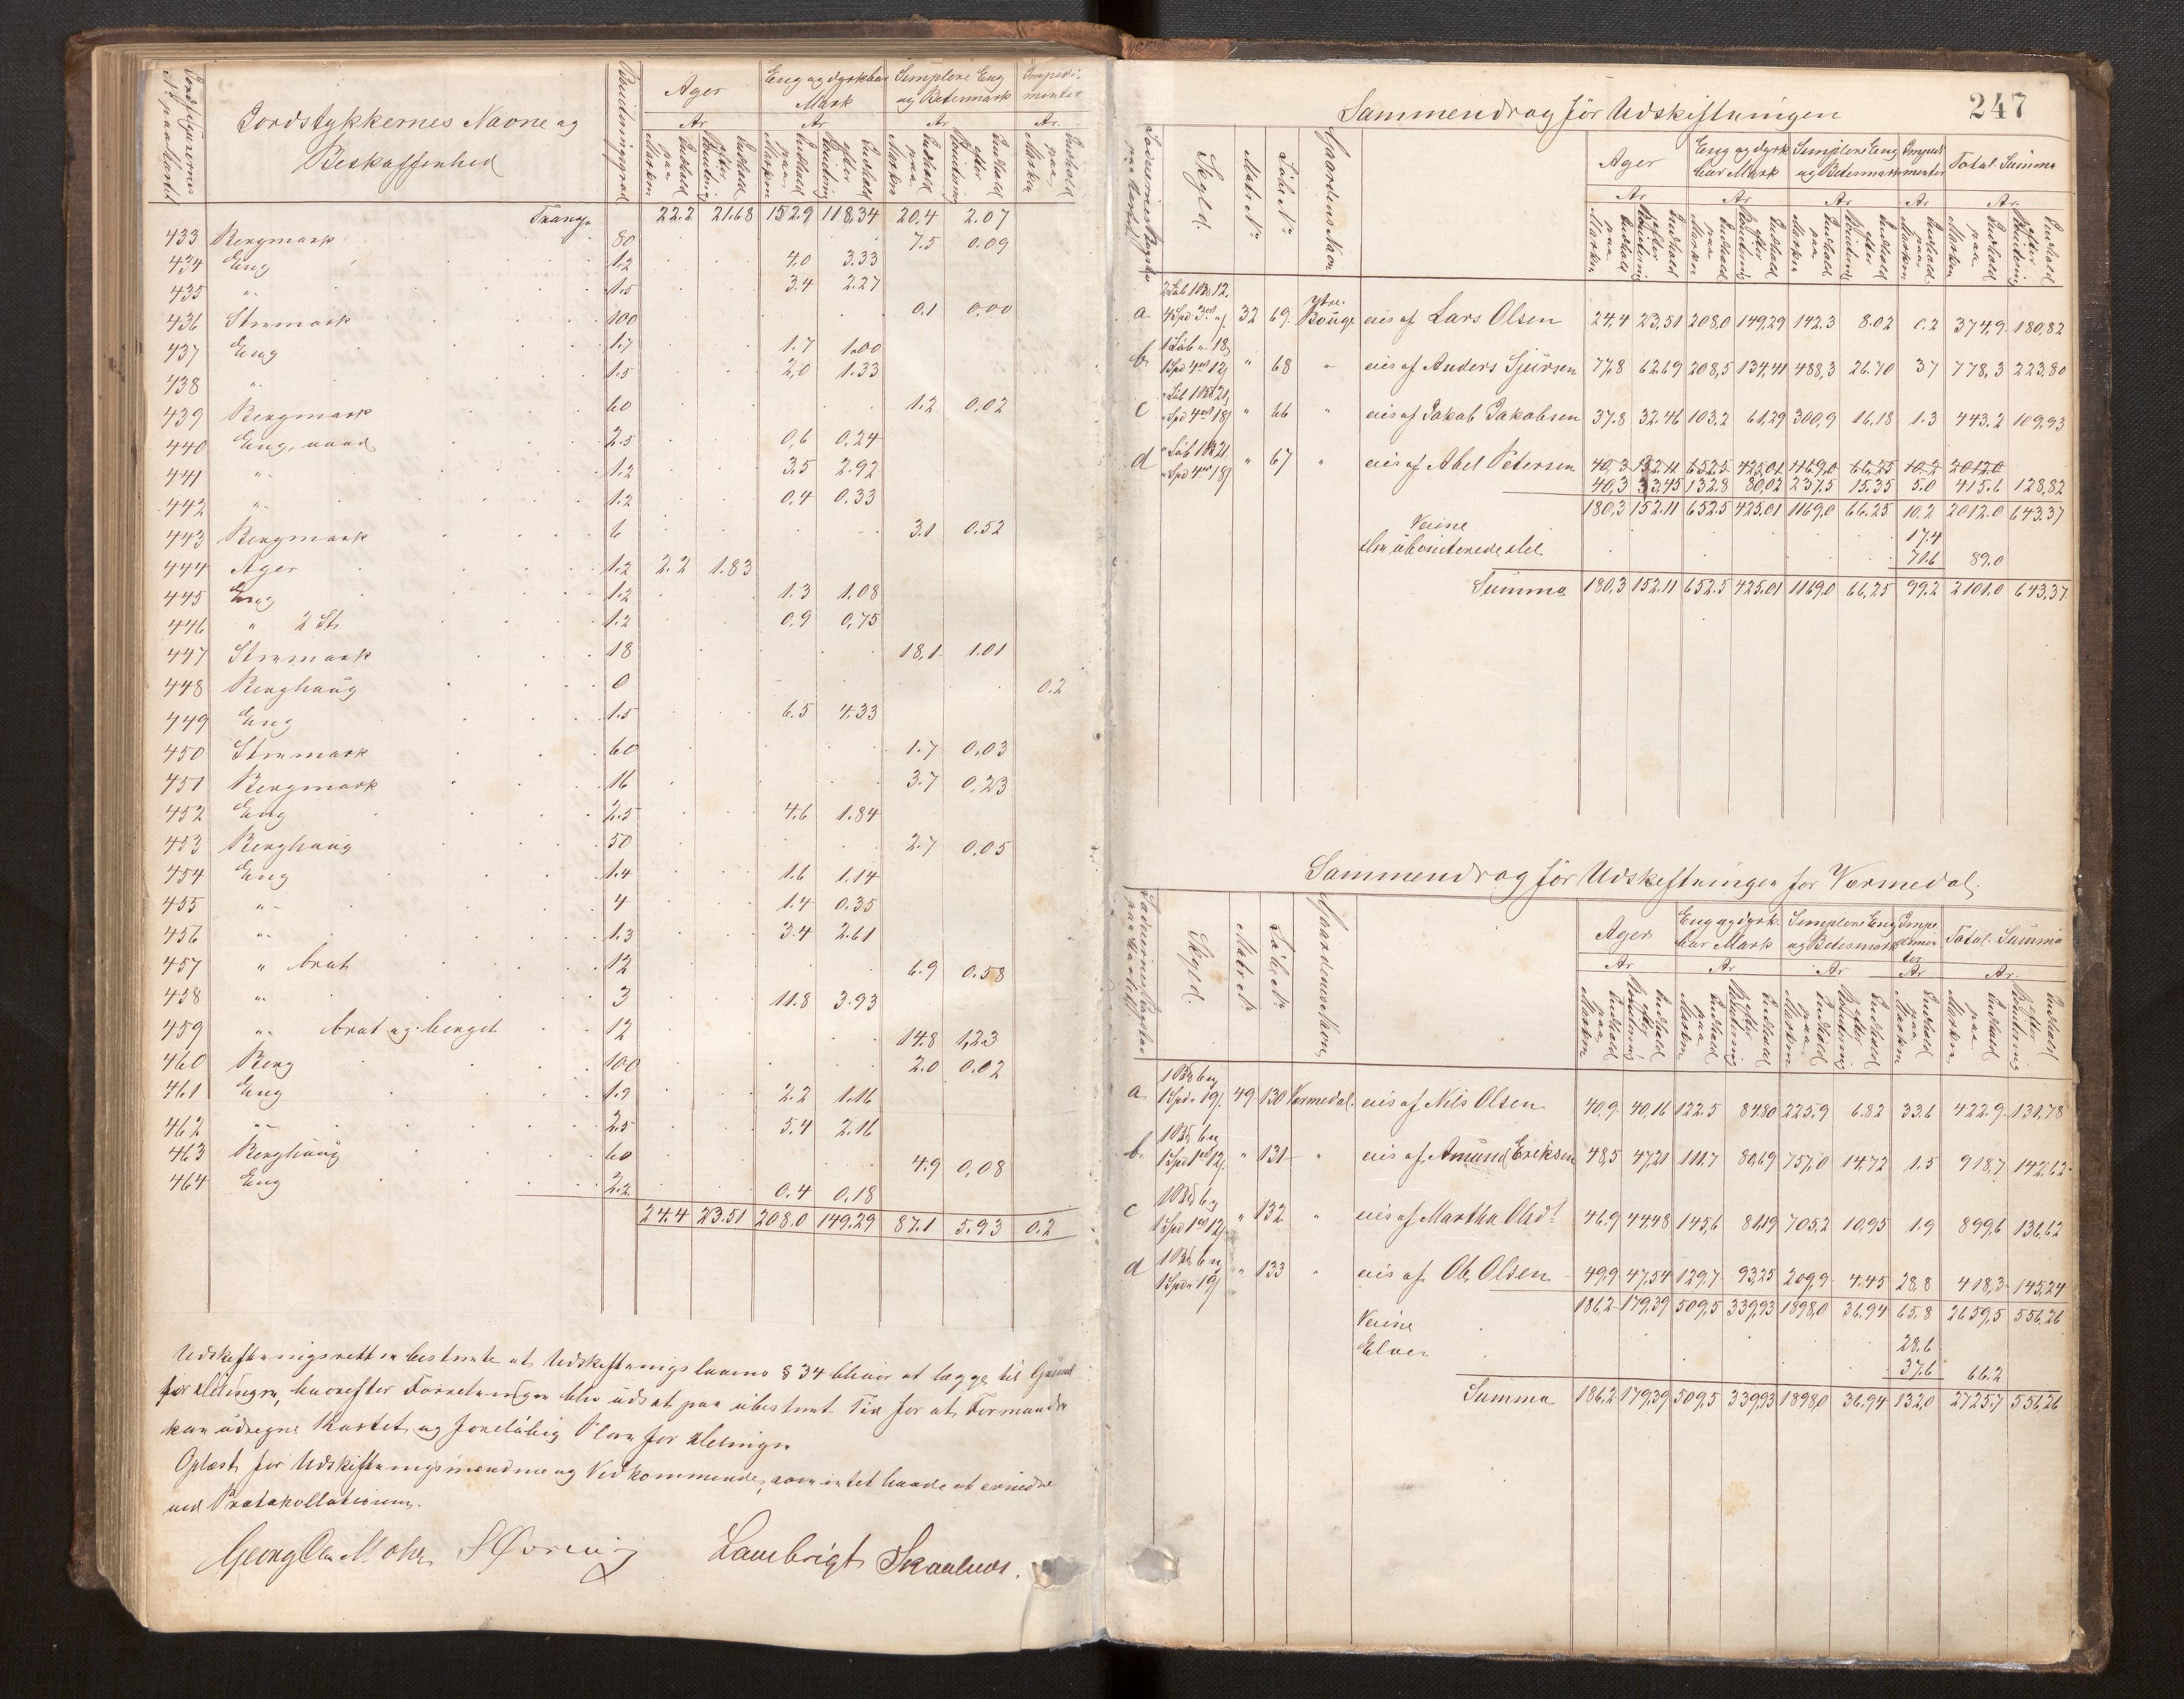 Jordstykkernes Navne og
Beskaffenhed
Boniteringsgrad
Ager
Eng og dyrkbar Mark
Simplere Eng og Betesmark
Impedimenter
Ar Ar Ar Ar
Indhold paa Marken
Indhold efter Bonitering
Indhold paa Marken
Indhold efter Bonitering
Indhold paa Marken
Indhold efter Bonitering
Indhold paa Marken
Transp. 22.2 21.68 152.9 118.34 20.4 2.07
433 Bergmark 80 7.5 0.09
434 Eng 1.2 4.0 3.33
435 "- 1.5 3.4 2.27
436 Stenmark 100 0.1 0.00
437 Eng 1.7 1.7 1.00
438 "- 1.5 2.0 1.33
439 Bergmark 60 1.2 0.02
440 Eng, vaad 2.5 0.6 0.24
441 "- 1.2 3.5 2.92
442 "- 1.2 0.4 0.33
443 Bergmark 6 3.1 0.52
444 Ager 1.2 2.2 1.83
445 Eng 1.2 1.3 1.08
446 " 2 St. 1.2 0.9 0.75
447 Stenmark 18 18.1 1.01
448 Berghaug 0 0.2
449 Eng 1.5 6.5 4.33
450 Stenmark 60 1.7 0.03
451 Bergmark 16 3.7 0.23
452 Eng 2.5 4.6 1.84
453 Berghaug 50 2.7 0.05
454 Eng 1.4 1.6 1.14
455 "- 4 1.4 0.35
456 "- 1.3 3.4 2.61
457 " brat 12 6.9 0.58
458 "- 3 11.8 3.93
459 "- brat og berget 12 14.8 1.23
460 Berg 100 2.0 0.02
461 Eng 1.9 2.2 1.16
462 "- 2.5 5.4 2.16
463 Berghaug 60 4.9 0.08
464 Eng 2.2 0.4 0.18
24.4 23.51 208.0 149.29 87.1 5.93 0.2
Udskiftningsretten bestemte at Udskiftningslovens § 34 bliver at lægge til Grund
for Delingen, hvorefter Forretningen blev udsat paa ubestemt Tid for at Formanden
kan udregne Kartet og foreløbig Plan for Delingen
Oplæst for Udskiftningsmændene og Vedkommende, som intet havde at erindre
ved Protokollationen.
Georg Mohr Lambrigt Skaaluren.
247
Sammendrag før Udskiftningen
Skyld.
Matr. No
Løbe No
Gaardens Navn
Ager
Eng og dyrkbar Mark
Simplere Eng og Betesmark
Impedimenter
Total Summa
Ar Ar Ar Ar Ar.
Indhold paa Marken
Indhold efter Bonitering
Indhold paa Marken
Indhold efter Bonitering
Indhold paa Marken
Indhold efter Bonitering
Indhold paa Marken
Indhold paa Marken
Indhold efter Bonitering
a 32 69 ytre Bouge eies af Lars Olsen 24.4 23.51 208.0 149.29 142.3 8.02 0.2 374.9 180.82
b. " 68 " eies af Anders Sjursen 77.8 62.69 208.5 134.41 488.3 26.70 3.7 778.3 223.80
c " 66 " eies af Jakob Jakobsen 37.8 32.46 103.2 61.29 300.9 16.18 1.3 443.2 109.93
d " 67 " eies af Abel Petersen 40.3 152.11 652.5 425.01 1169.0 66.25 10.2 2012.0
40.3 33.45 132.8 80.02 237.5 15.35 5.0 415.6 128.82
180.3 152.11 652.5 425.01 1169.0 66.25 10.2 2012.0 643.37
Veiene 17.4
den uboniterede del 71.6 89.0
Summa 180.3 152.11 652.5 425.01 1169.0 66.25 99.2 2101.0 643.37
Sammendrag før Udskiftningen for Vormedal.
Skyld.
Matr. No
Løbe No
Gaardens Navn
Ager
Eng og dyrkbar Mark
Simplere Eng og Betesmark
Impedimenter
Total Summa
Ar Ar Ar Ar Ar.
Indhold paa Marken
Indhold efter Bonitering
Indhold paa Marken
Indhold efter Bonitering
Indhold paa Marken
Indhold efter Bonitering
Indhold paa Marken
Indhold paa Marken
Indhold efter Bonitering
a 49 130 Vormedal. eies af Nils Olsen 40.9 40.16 122.5 84.80 225.9 6.82 33.6 422.9 131.78
b. " 131 " eies af Amund Eriksen 48.5 47.21 111.7 80.69 757.0 14.72 1.5 918.7 142.62
c " 132 " eies af Martha Olsd. 46.9 44.48 145.6 81.19 705.2 10.95 1.9 899.6 136.62
d " 133 " eies af Ole Olsen 49.9 47.54 129.7 93.25 209.9 4.45 28.8 418.3 145.24
186.2 179.39 509.5 339.93 1898.0 36.94 65.8 2659.5 556.26
Veiene 28.6
Elven 37.6 66.2
Summa 186.2 179.39 509.5 339.93 1898.0 36.94 132.0 2725.7 556.26